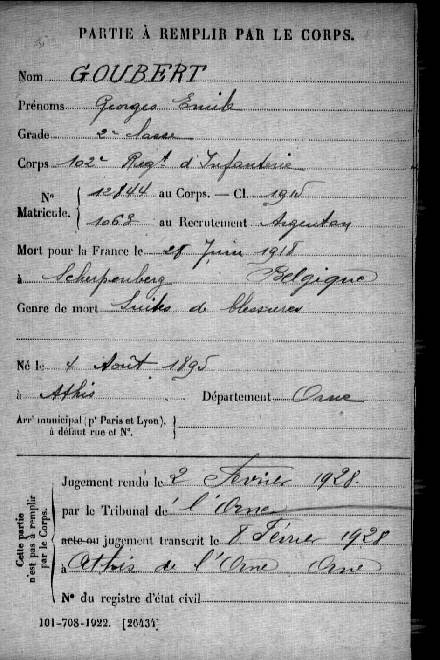 PARTIE À REMPLIR PAR LE CORPS.
Nom GOUBERT
Prénoms Georges Emile
Grade 2e classe
Corps 102e Regt d'Infanterie
Nº Matricule. { 12844 au Corps. — Cl. 1915
1063 au Recrutement Argentan
Mort pour la France le 28 Juin 1918
à Scherpenberg Belgique
Genre de mort Suites de blessures
Né le 4 Août 1895
à Athis Département Orne
Arrt municipal (pr Paris et Lyon), à défaut rue et Nº.
Cette partie n'est pas à remplir par le Corps.
Jugement rendu le 2 Février 1928.
par le Tribunal de l'Orne
acte ou jugement transcrit le 8 Février 1928
à Athis de l'Orne Orne
Nº du registre d'état civil
101-708-1922. [26434]